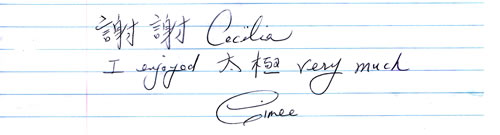 謝謝 Cecilia
I enjoyed 太極 very much
Eimee